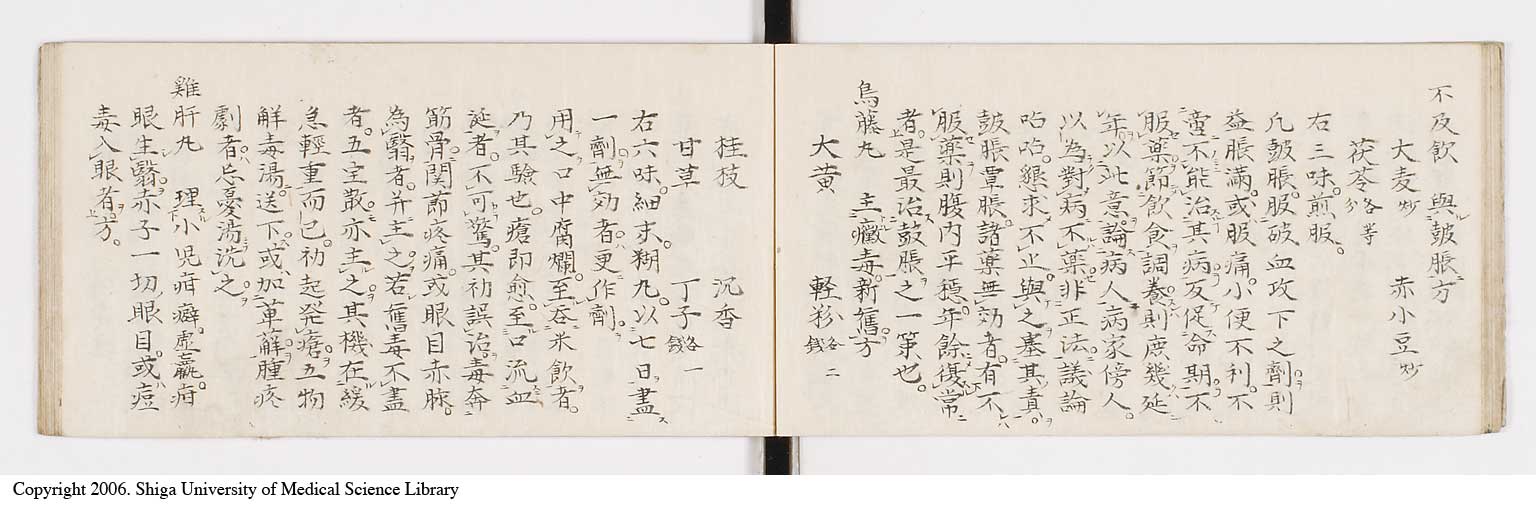 不及飲　與皷脹方
大麦炒　赤小豆炒
茯苓各等分
右三味。煎服。
凡皷脹。服破血攻下之劑則
益脹滿。或服痛。小便不利。不
啻不能治其病。反促命期。不
服藥。節飲食。調養則庶幾延
年。以此意論病人。病家傍人。
以為對病不藥。非正法。議論
咍咍。懇求不止。與之塞其責。
皷脹蕈脹。諸藥無効者。有不
服藥則腹内平穩。年餘復常
者。是最治鼓脹之一策也。
烏藤丸　主黴毒新舊方
大黄　軽粉各二錢
桂枝　沉香
甘草　丁子各一錢
右六味。細末。糊丸。以七日盡
一劑。無効者。更作劑。
用之。口中腐爛。至呑米飲者。
乃其驗也。瘡即愈。至口流血
涎者。不可驚。其初誤治。毒奔
筋骨。関節疼痛。或眼目赤脉。
為翳者。并主之。若舊毒不盡
者。五宝散亦主之。其機在緩
急輕重而已。初起発瘡。五物
解毒湯。送下。或加萆薢腫疼
劇者。忘憂湯洗之。
雞肝丸　理小児疳癖。虚羸。疳
眼生翳。赤子一切眼目。或痘
毒入眼者方。
Copyright 2006. Shiga University of Medical Science Library